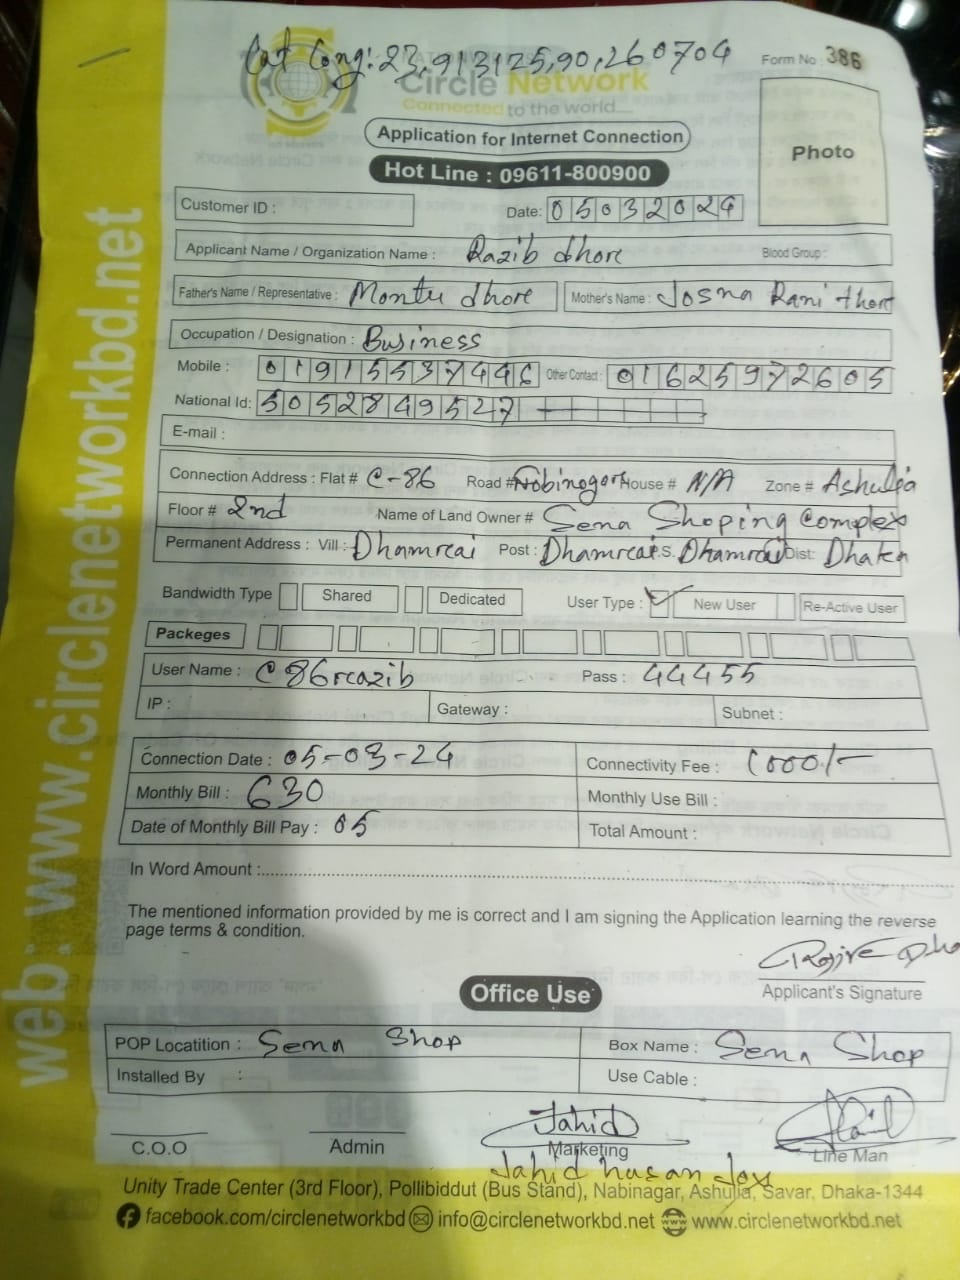 Lat Long: 23.913125,90.260704
Form No : 386
Circle Network
Connected to the world....
Application for Internet Connection
Photo
Hot Line : 09611-800900
Customer ID :
Date: 05032024
Applicant Name / Organization Name : Razib dhore
Blood Group :
Father's Name / Representative : Montu dhore
Mother's Name : Josna Rani
Occupation / Designation : Business
Mobile : 01915537446 Other Contact : 01625972605
National Id: 5052849527
E-mail :
Connection Address : Flat # C-86 Road # Nobinogor House # N/A Zone # Ashulia
Floor # 2nd Name of Land Owner # Sena Shoping Complex
Permanent Address : Vill : Dhamrai Post : Dhamrai P.S. Dhamrai Dist: Dhaka
Bandwidth Type Shared Dedicated User Type : ✓ New User Re-Active User
Packeges
User Name : C86razib Pass : 44455
IP : Gateway : Subnet :
Connection Date : 05-03-24 Connectivity Fee : 1000/-
Monthly Bill : 630 Monthly Use Bill :
Date of Monthly Bill Pay : 05 Total Amount :
In Word Amount :
The mentioned information provided by me is correct and I am signing the Application learning the reverse
page terms & condition.
Applicant's Signature
Office Use
POP Locatition : Sena Shop Box Name : Sena Shop
Installed By : Use Cable :
Jahid
C.O.O Admin Marketing Line Man
Jahid hasan
Unity Trade Center (3rd Floor), Pollibiddut (Bus Stand), Nabinagar, Ashulia, Savar, Dhaka-1344
facebook.com/circlenetworkbd info@circlenetworkbd.net www.circlenetworkbd.net
web : www.circlenetworkbd.net